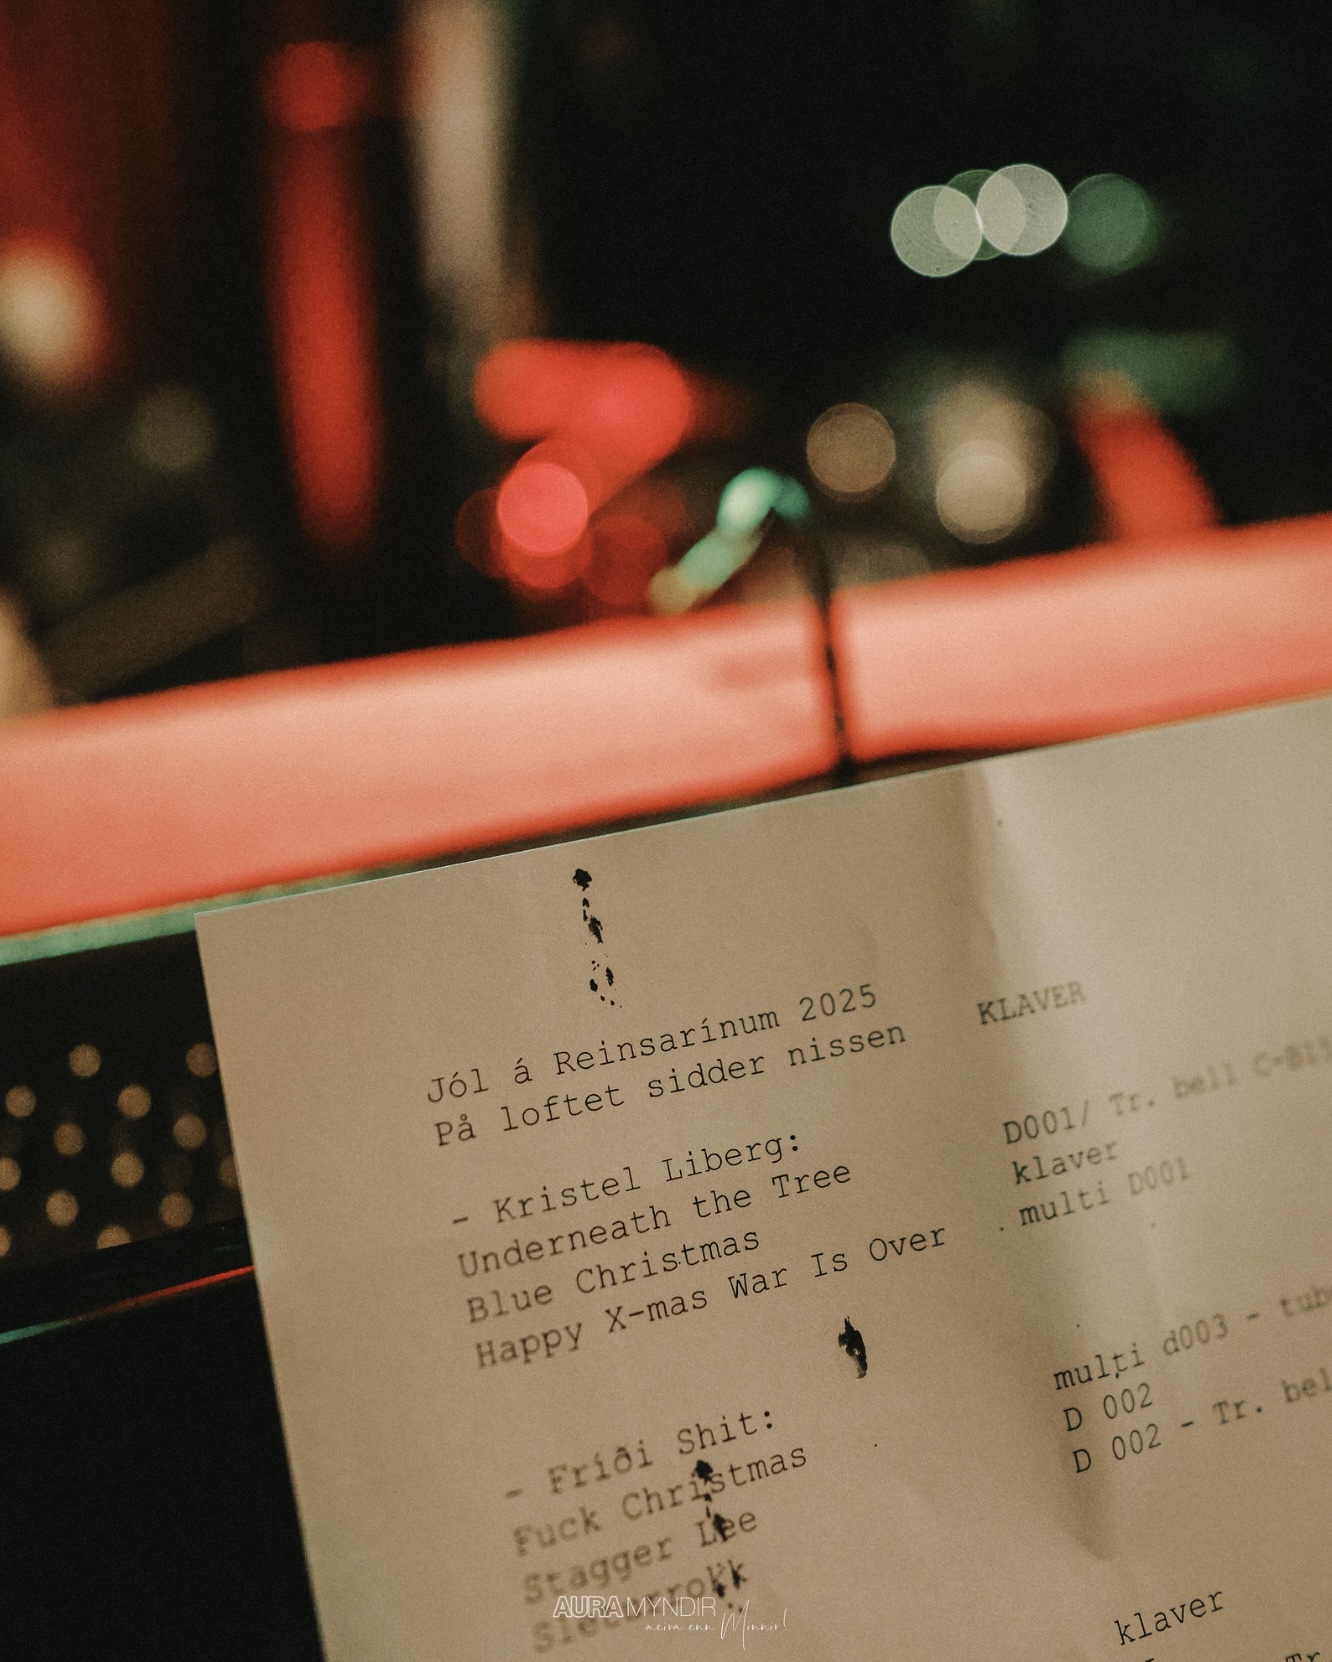 Jól á Reinsarínum 2025
På loftet sidder nissen KLAVER
- Kristel Liberg:
Underneath the Tree D001/ Tr. bell
Blue Christmas klaver
Happy X-mas War Is Over . multi D001
- Fríði Shit:
Fuck Christmas multi d003 -
Stagger Lee D 002
D 002 - Tr.
klaver
Tr
AURA MYNDIR
meira enn Minnir!